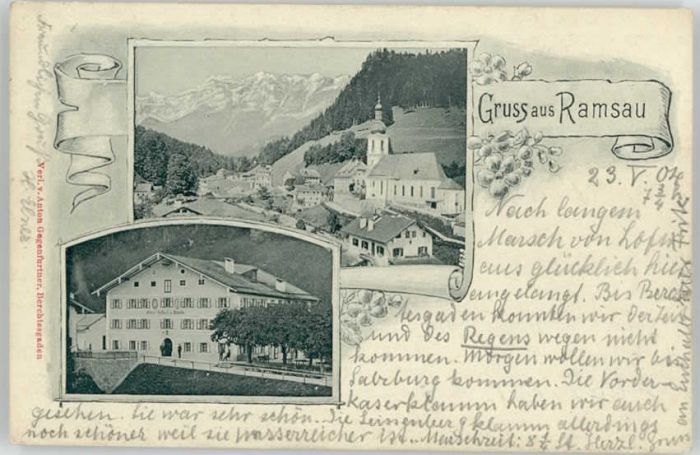 Gruss aus Ramsau
Verl. v. Anton Gegenfurtner, Berchtesgaden
23. V. 02
Nach langem
Marsch von Lofer
aus glücklich hier
angelangt. Bis Berch-
tesgaden konnten wir der Zeit
und des Regens wegen nicht
kommen. Morgen wollen wir bis
Salzburg kommen. Die Vorder-
kaserklamm haben wir auch
gesehen. Sie war sehr schön. Die Seisenbergklamm allerdings
noch schöner weil sie wasserreicher ist. Marschzeit: 8 ½ St. Herzl. Gruss